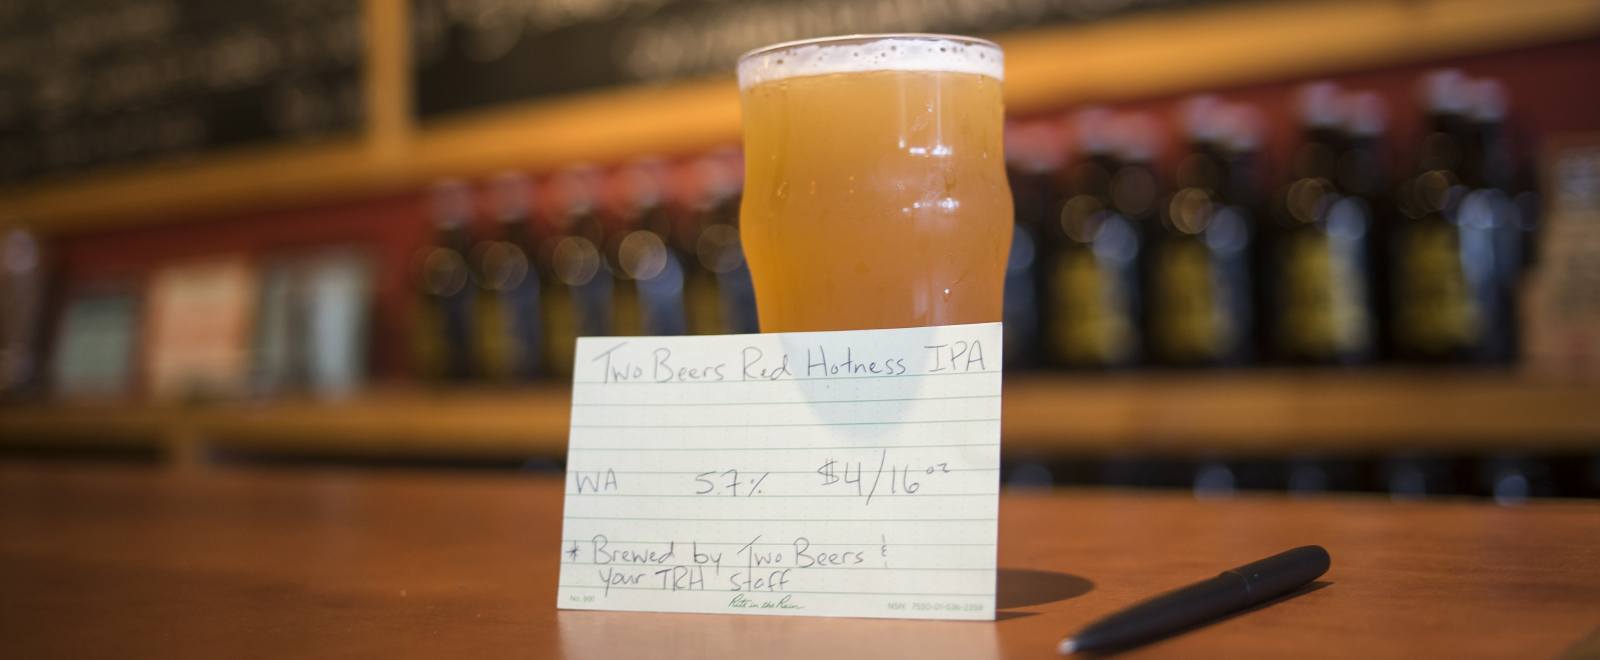 Two Beers Red Hotness IPA
WA 5.7% $4/16oz
* Brewed by Two Beers &
your TRH staff
No. 991 Rite in the Rain NSN: 7530-01-536-2359